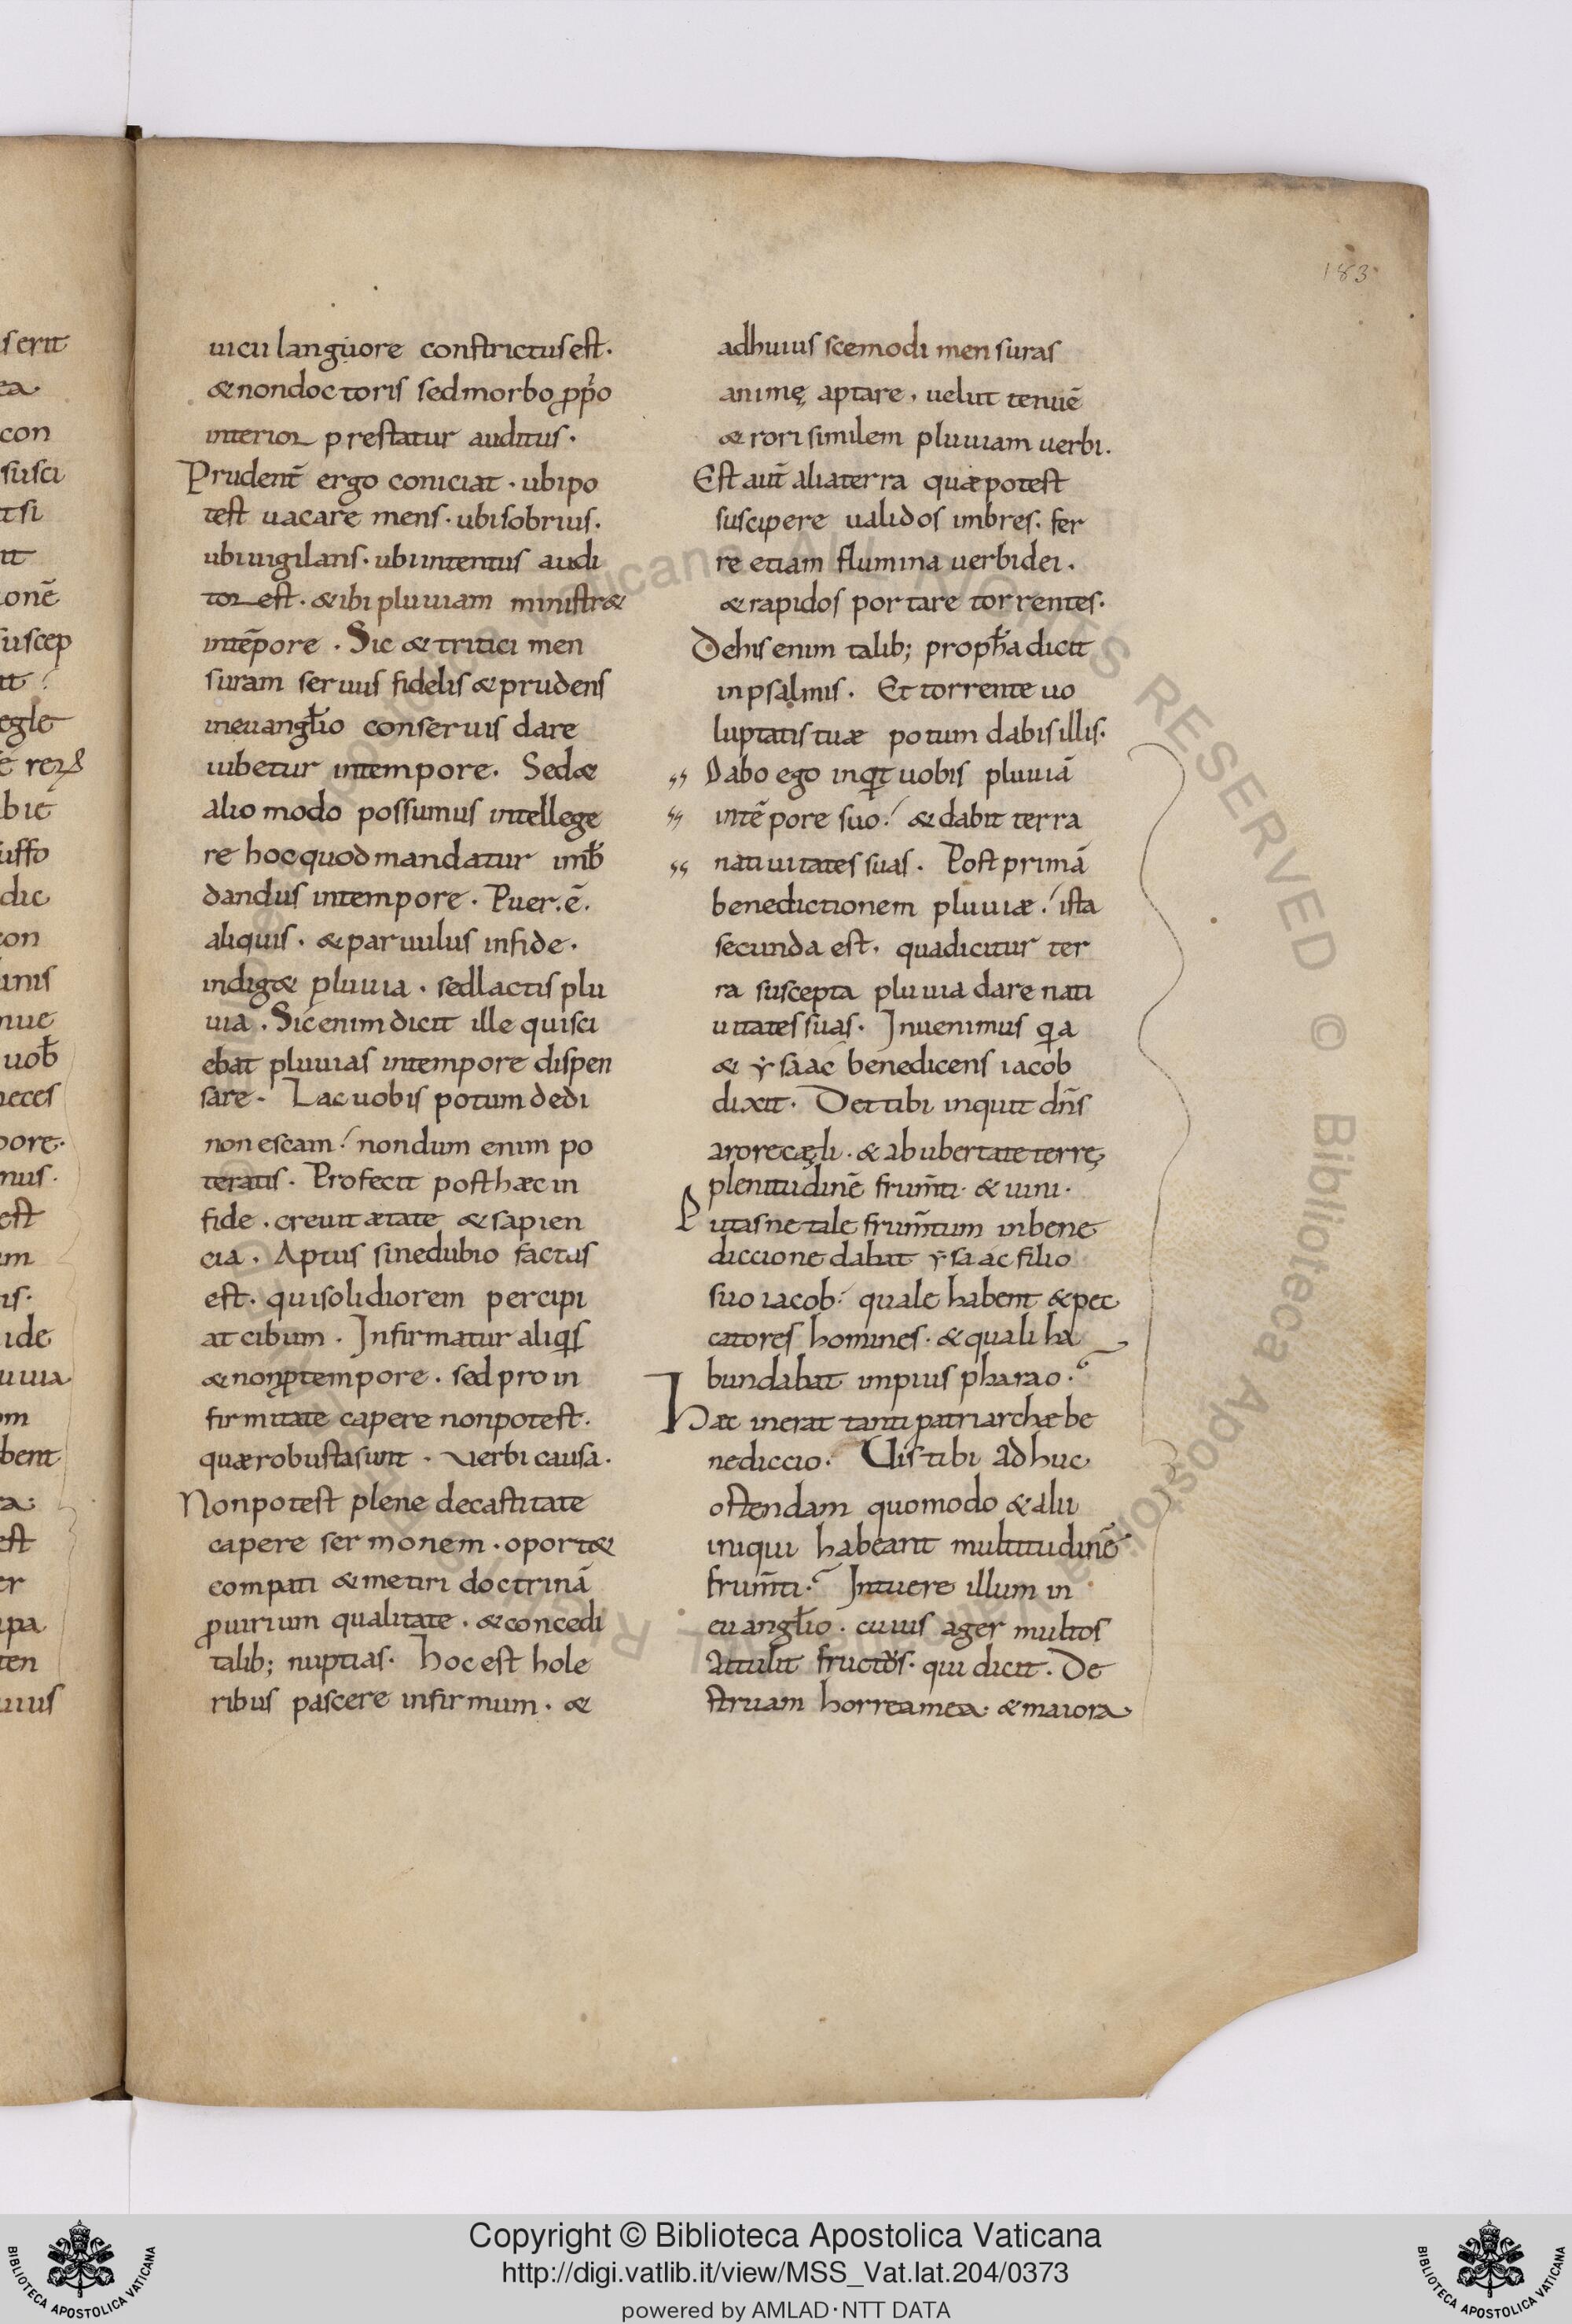 183
uicu languore constrictus est.
& nondoctoris sed morbo pp̄o
interior prestatur auditus.
Prudent̄ ergo coniciat. ubi po
test uacare mens. ubi sobrius.
ubi uigilans. ubi intentus audi
tor est. & ibi pluuiam ministr&
intēpore. Sic & tritici men
suram seruus fidelis & prudens
in euangl̄io conseruis dare
iubetur intempore. Sed &
alio modo possumus intellege
re hoc quod mandatur imb̄
dandus intempore. Puer. ē.
aliquis. & paruulus infide.
indig& pluuia. sed lactis plu
uia. Sic enim dicit ille qui sci
ebat pluuias intempore dispen
sare. Lac uobis potum dedi
non escam. nondum enim po
teratis. Profecit post hæc in
fide. creuit ætate & sapien
cia. Aptus sine dubio factus
est. qui solidiorem percipi
at cibum. Infirmatur aliq̄s
& non ꝑ tempore. sed pro in
firmitate capere non potest.
quæ robusta sunt. uerbi causa.
Non potest plene de castitate
capere sermonem. oport&
compati & metiri doctrinā
ꝓ uirium qualitate. & concedi
talib; nuptias. hoc est hole
ribus pascere infirmum. &
adhuiusscemodi mensuras
animę aptare. uelut tenuē
& rori similem pluuiam uerbi.
Est aut̄ alia terra quæ potest
suscipere ualidos imbres. fer
re etiam flumina uerbi dei.
& rapidos portare torrentes.
De his enim talib; proph̄a dicit
in psalmis. Et torrente uo
luptatis tuæ potum dabis illis.
Dabo ego inq̄t uobis pluuiā
intē pore suo. & dabit terra
natiuitates suas. Post primā
benedictionem pluuiæ. ista
secunda est. qua dicitur ter
ra suscepta pluuia dare nati
uitates suas. Inuenimus q̄a
& ysaac benedicens iacob
dixit. Det tibi inquit dn̄s
a rore cæli. & ab ubertate terrę
plenitudinē frum̄ti. & uini.
Putasne tale frum̄tum in bene
diccione dabat ysaac filio
suo iacob. quale habent & pec
catores homines. & quali ha
bundabat impius pharao.
Hæc inerat tanti patriarchæ be
nediccio. Uis tibi adhuc
ostendam quomodo & alii
iniqui habeant multitudinē
frum̄ti. Intuere illum in
euangl̄io. cuius ager multos
attulit fructus. qui dicit. De
struam horrea mea. & maiora
Copyright © Biblioteca Apostolica Vaticana
http://digi.vatlib.it/view/MSS_Vat.lat.204/0373
powered by AMLAD·NTT DATA
BIBLIOTECA APOSTOLICA VATICANA
BIBLIOTECA APOSTOLICA VATICANA